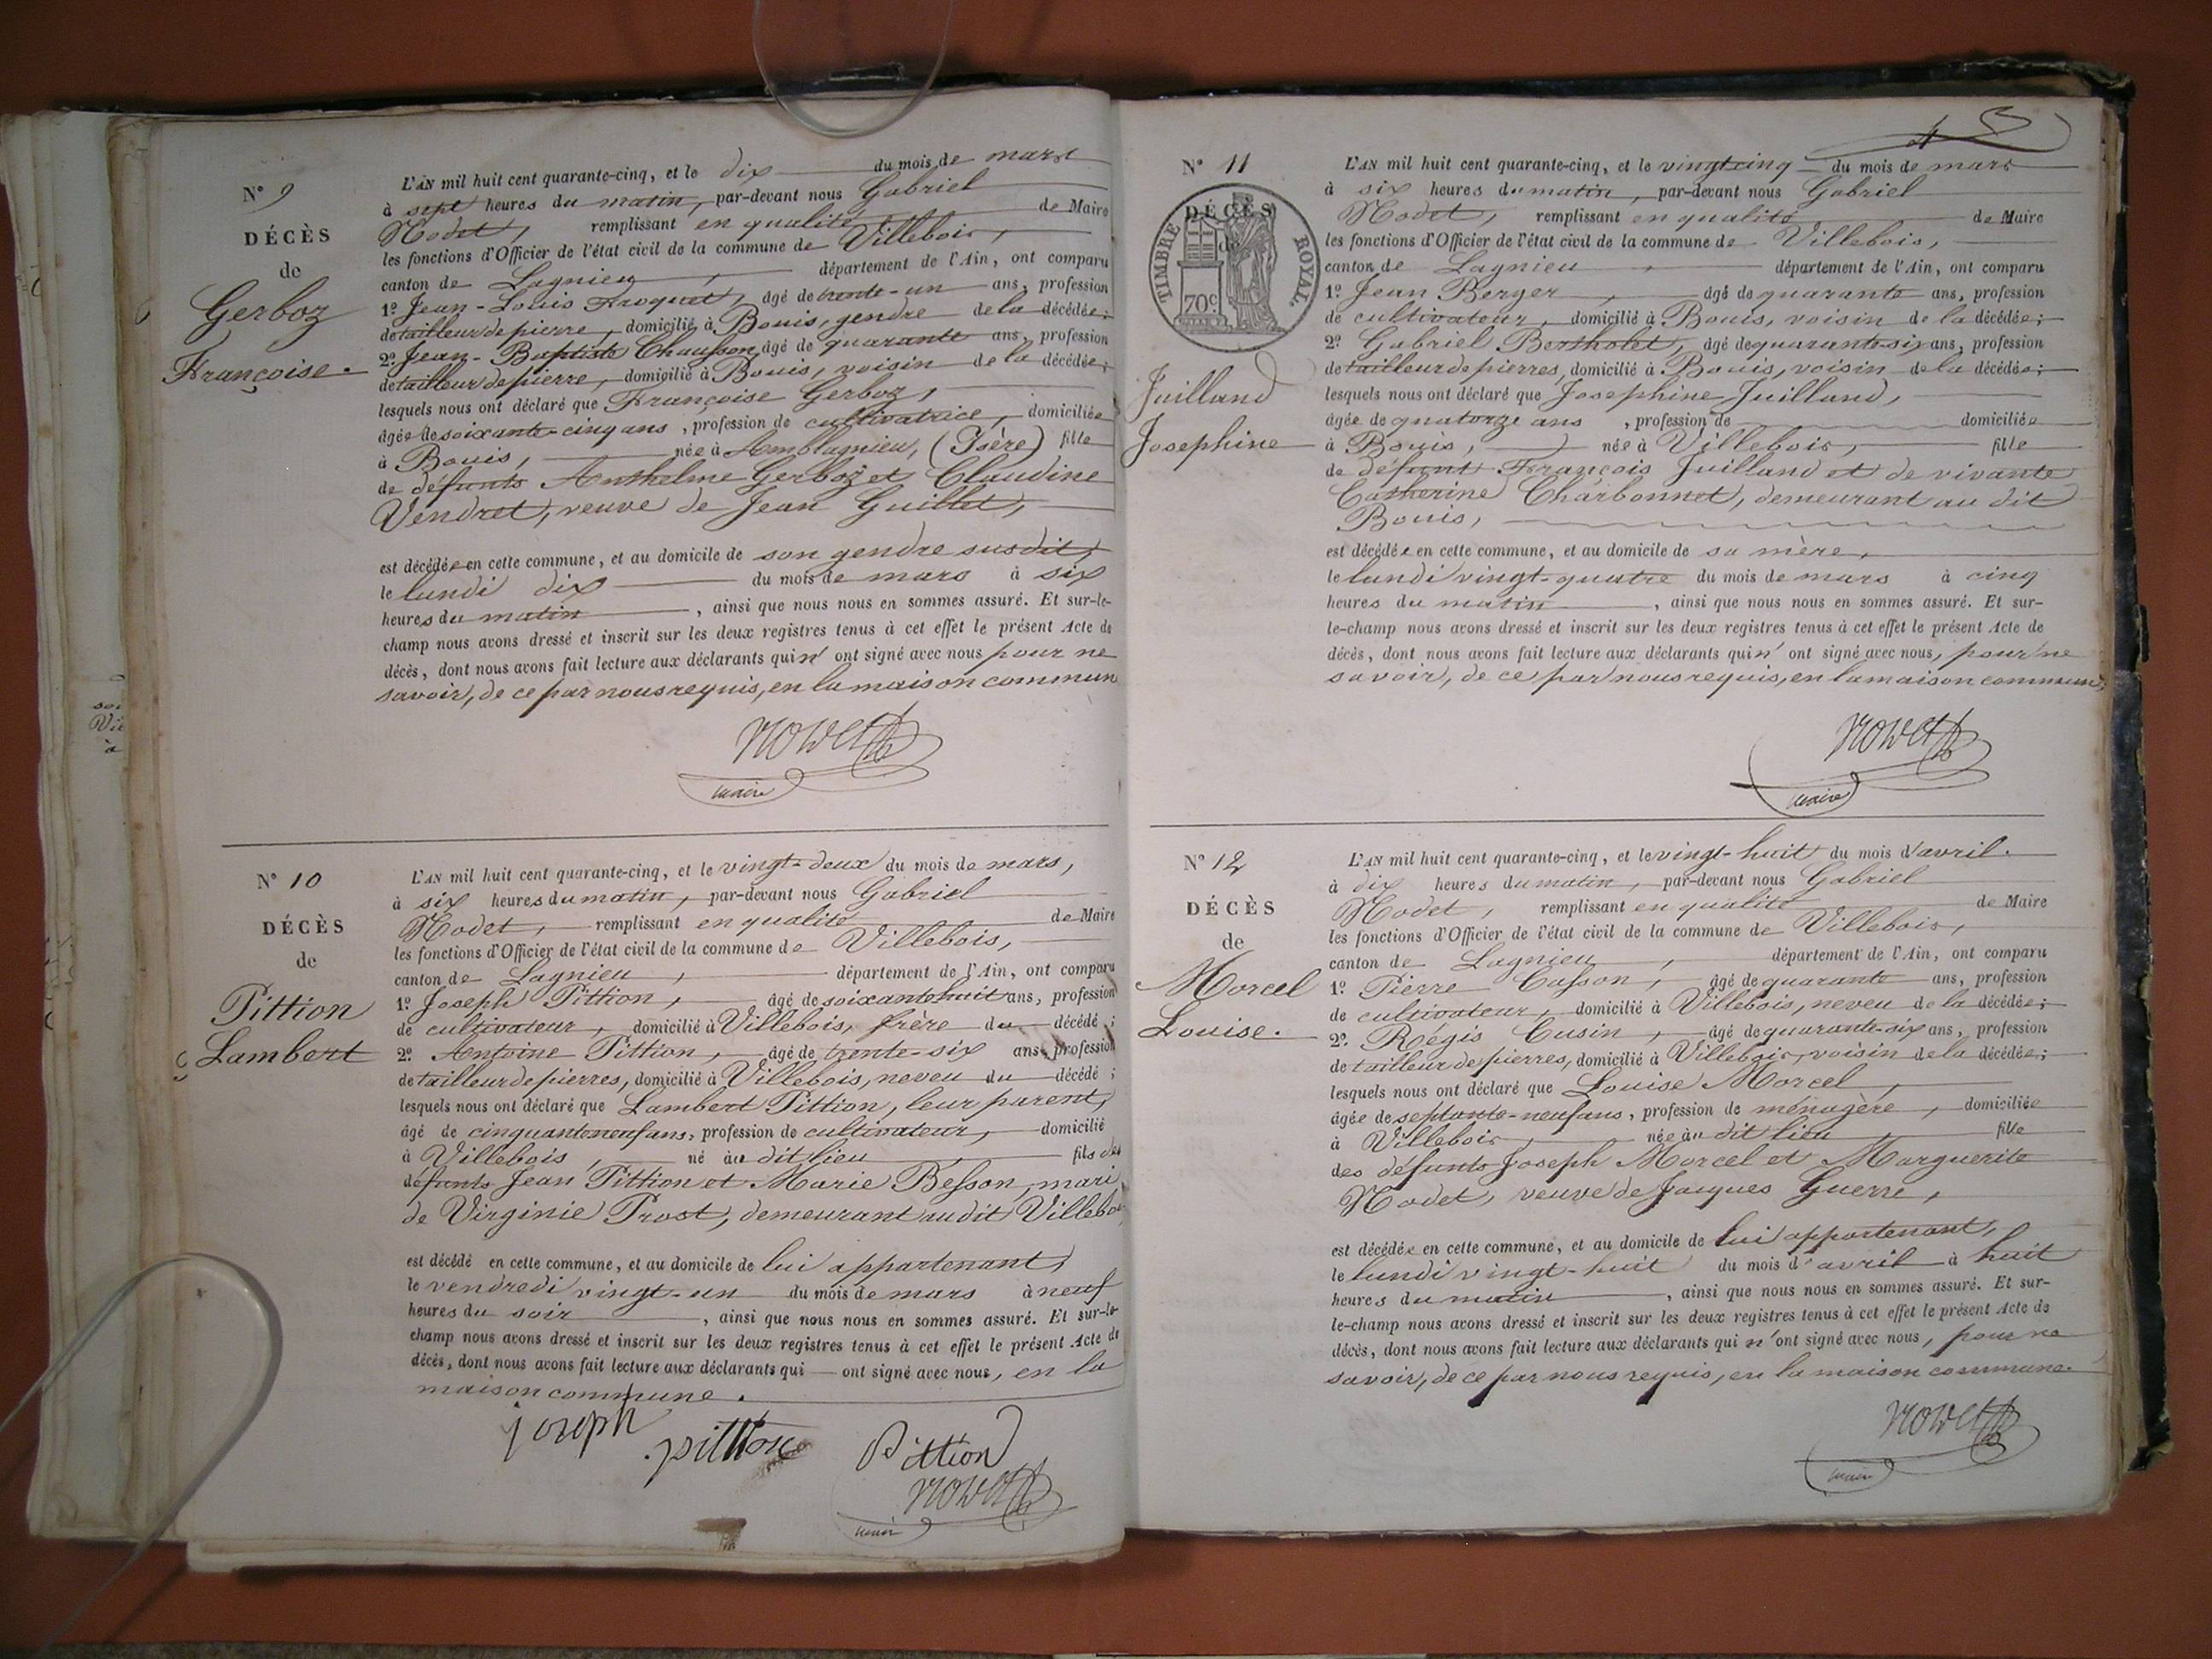 N° 9
DÉCÈS
de
Gerboz
Françoise.
L'AN mil huit cent quarante-cinq, et le dix du mois de mars
à sept heures du matin, par-devant nous Gabriel
Nodet, remplissant en qualité de Maire
les fonctions d'Officier de l'état civil de la commune de Villebois,
canton de Lagnieu, département de l'Ain, ont comparu
1° Jean-Louis Froquet, âgé de trente-un ans, profession
de tailleur de pierre, domicilié à Bouis, gendre de la décédée;
2° Jean-Baptiste Chausson, âgé de quarante ans, profession
de tailleur de pierre, domicilié à Bouis, voisin de la décédée;
lesquels nous ont déclaré que Françoise Gerboz,
âgée de soixante-cinq ans, profession de cultivatrice, domiciliée
à Bouis, née à Amblagnieu, (Isère) fille
de défunts Anthelme Gerboz et Claudine
Vendret, veuve de Jean Guillet,
est décédée en cette commune, et au domicile de son gendre susdit,
le lundi dix du mois de mars à six
heures du matin, ainsi que nous nous en sommes assuré. Et sur-le-
champ nous avons dressé et inscrit sur les deux registres tenus à cet effet le présent Acte de
décès, dont nous avons fait lecture aux déclarants qui n'ont signé avec nous pour ne
savoir, de ce par nous requis, en la maison commun
Nodet
maire
N° 10
DÉCÈS
de
Pittion
Lambert
L'AN mil huit cent quarante-cinq, et le vingt-deux du mois de mars,
à six heures du matin, par-devant nous Gabriel
Nodet, remplissant en qualité de Maire
les fonctions d'Officier de l'état civil de la commune de Villebois,
canton de Lagnieu, département de l'Ain, ont comparu
1° Joseph Pittion, âgé de soixante huit ans, profession
de cultivateur, domicilié à Villebois, frère du décédé;
2° Antoine Pittion, âgé de trente-six ans, profession
de tailleur de pierres, domicilié à Villebois, neveu du décédé;
lesquels nous ont déclaré que Lambert Pittion, leur parent,
âgé de cinquante neuf ans, profession de cultivateur, domicilié
à Villebois, né au dit lieu fils des
défunts Jean Pittion et Marie Besson, mari
de Virginie Prost, demeurant audit Villebois
est décédé en cette commune, et au domicile de lui appartenant,
le vendredi vingt-un du mois de mars à neuf
heures du soir, ainsi que nous nous en sommes assuré. Et sur-le-
champ nous avons dressé et inscrit sur les deux registres tenus à cet effet le présent Acte de
décès, dont nous avons fait lecture aux déclarants qui ont signé avec nous, en la
maison commune.
joseph pittion Pittion
Nodet
maire
N° 11
DÉCÈS
de
TIMBRE ROYAL.
70c
Juilland
Josephine
L'AN mil huit cent quarante-cinq, et le vingt cinq du mois de mars
à six heures du matin, par-devant nous Gabriel
Nodet, remplissant en qualité de Maire
les fonctions d'Officier de l'état civil de la commune de Villebois,
canton de Lagnieu département de l'Ain, ont comparu
1° Jean Berger, âgé de quarante ans, profession
de cultivateur, domicilié à Bouis, voisin de la décédée;
2° Gabriel Bertholet, âgé de quarante-six ans, profession
de tailleur de pierres, domicilié à Bouis, voisin de la décédée;
lesquels nous ont déclaré que Josephine Juilland,
âgée de quatorze ans, profession de domiciliée
à Bouis, née à Villebois, fille
de défunt François Juilland et de vivante
Catherine Charbonnet, demeurant au dit
Bouis,
est décédée en cette commune, et au domicile de sa mère,
le lundi vingt-quatre du mois de mars à cinq
heures du matin, ainsi que nous nous en sommes assuré. Et sur-
le-champ nous avons dressé et inscrit sur les deux registres tenus à cet effet le présent Acte de
décès, dont nous avons fait lecture aux déclarants qui n'ont signé avec nous, pour ne
savoir, de ce par nous requis, en la maison commune;
Nodet
maire
N° 12
DÉCÈS
de
Morcel
Louise.
L'AN mil huit cent quarante-cinq, et le vingt-huit du mois d'avril.
à dix heures du matin, par-devant nous Gabriel
Nodet, remplissant en qualité de Maire
les fonctions d'Officier de l'état civil de la commune de Villebois,
canton de Lagnieu, département de l'Ain, ont comparu
1° Pierre Casson, âgé de quarante ans, profession
de cultivateur, domicilié à Villebois, neveu de la décédée;
2° Régis Cusin, âgé de quarante-six ans, profession
de tailleur de pierres, domicilié à Villebois, voisin de la décédée;
lesquels nous ont déclaré que Louise Morcel,
âgée de septante-neuf ans, profession de ménagère, domiciliée
à Villebois, née au dit lieu fille
des défunts Joseph Morcel et Marguerite
Nodet, veuve de Jacques Guerre,
est décédée en cette commune, et au domicile de lui appartenant,
le lundi vingt-huit du mois d'avril à huit
heures du matin, ainsi que nous nous en sommes assuré. Et sur-
le-champ nous avons dressé et inscrit sur les deux registres tenus à cet effet le présent Acte de
décès, dont nous avons fait lecture aux déclarants qui n'ont signé avec nous, pour ne
savoir, de ce par nous requis, en la maison commune.
Nodet
maire